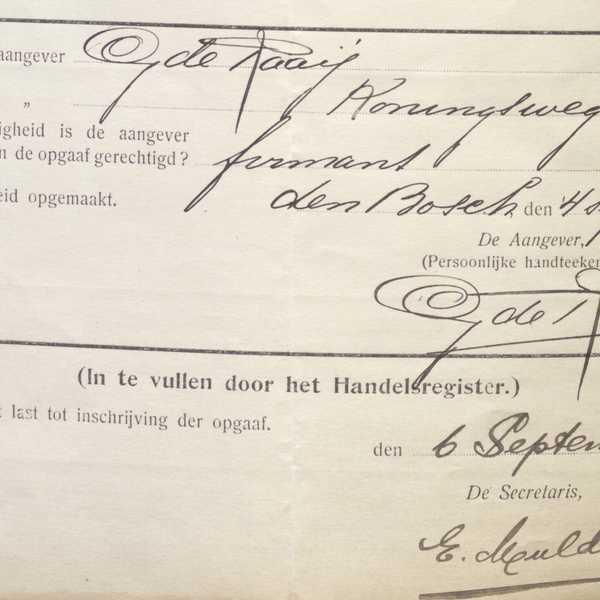 aangever G de Raaij
„ Koningsweg
igheid is de aangever
n de opgaaf gerechtigd? firmant
eid opgemaakt. den Bosch, den 4 s
De Aangever,
(Persoonlijke handteeken
G de
(In te vullen door het Handelsregister.)
t last tot inschrijving der opgaaf.
den 6 Septem
De Secretaris,
E. Muld